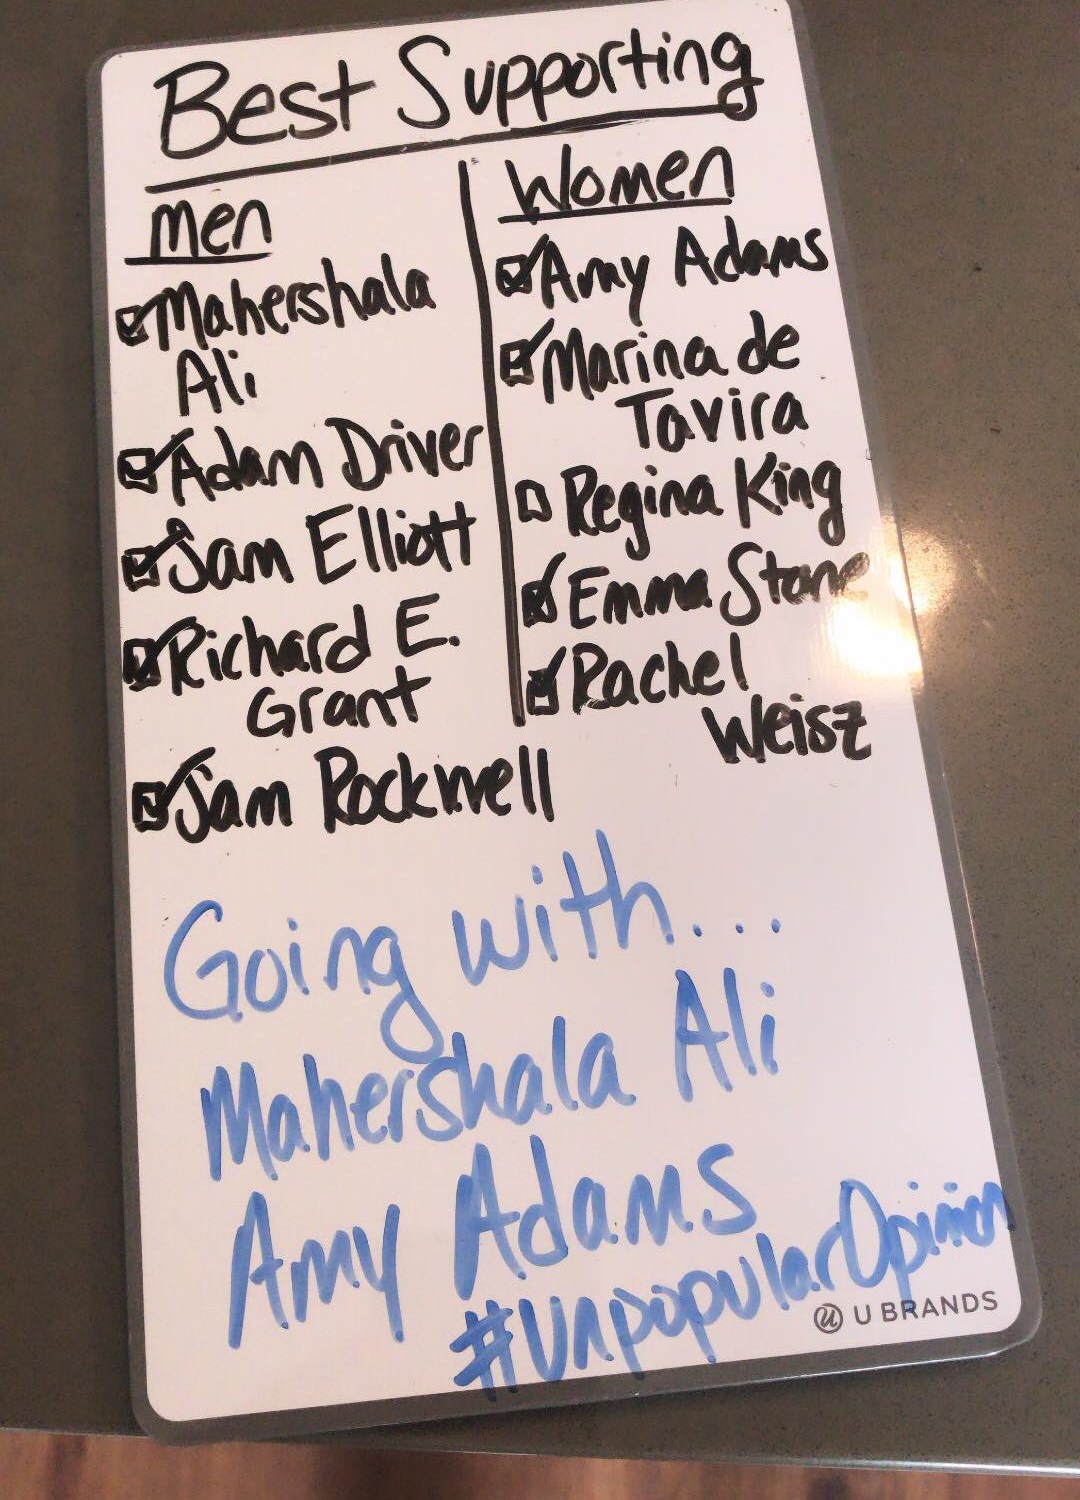 Best Supporting
Men
Mahershala
Ali
Adam Driver
Sam Elliott
Richard E.
Grant
Sam Rockwell
Women
Amy Adams
Marina de
Tavira
Regina King
Emma Stone
Rachel
Weisz
Going with...
Mahershala Ali
Amy Adams
#UnpopularOpinion
U BRANDS